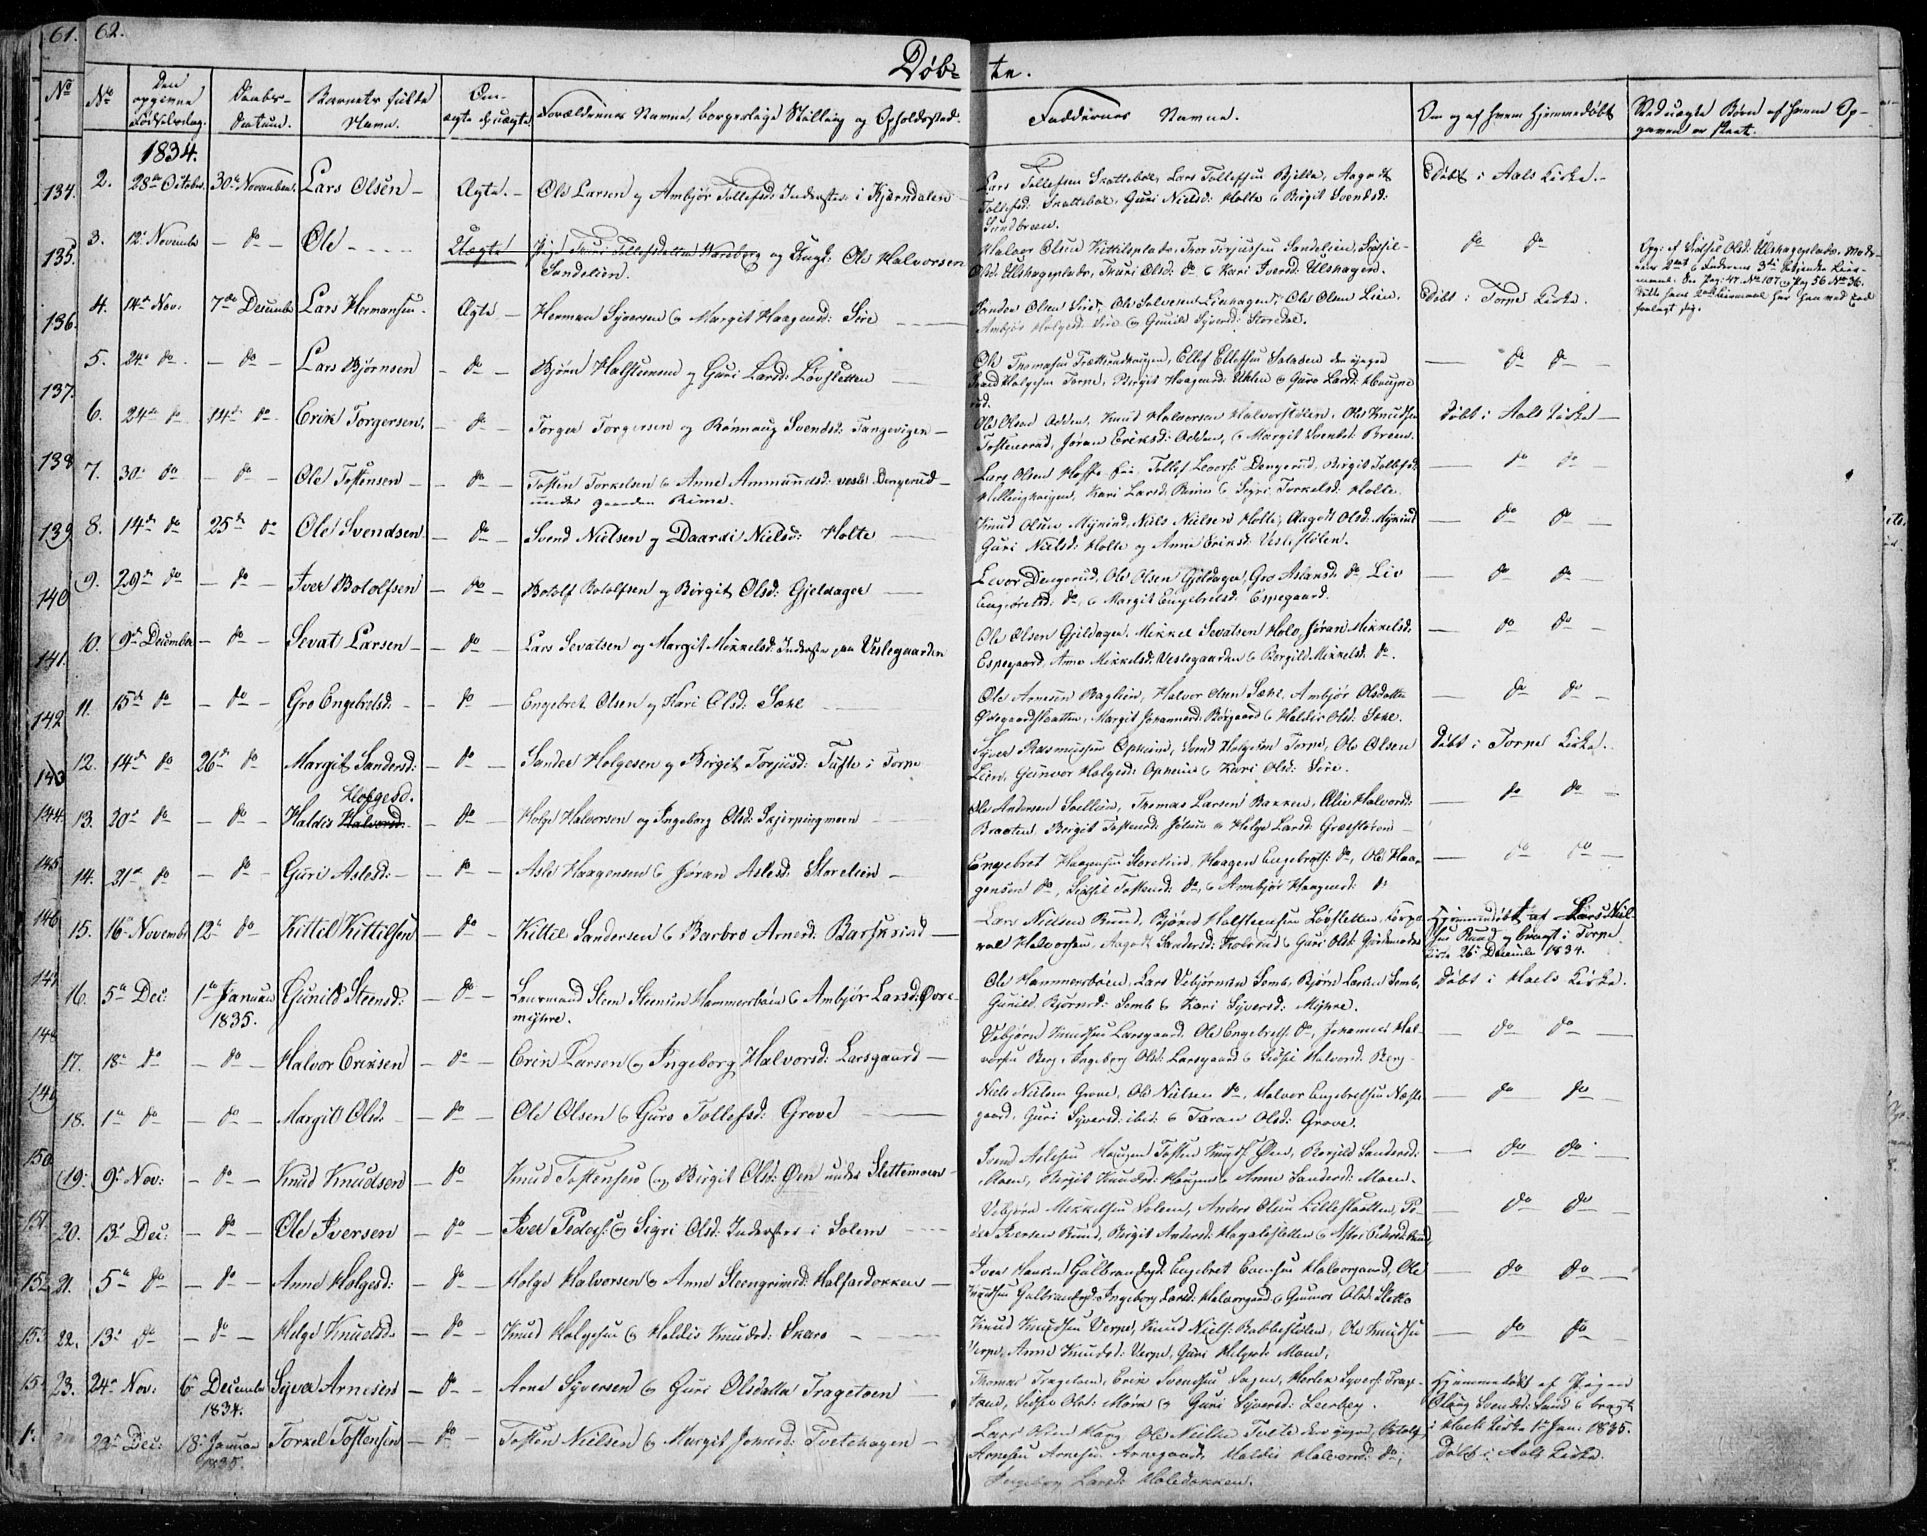 61. 62.
Døb- te.
No No Den opgivne Fødselsdag. Daabs-Datum. Barnets fulde Navn. Om ægte el. uægte. Forældrenes Navne, borgerlige Stilling og Opholdssted. Faddernes Navne. Om og af hvem hjemmedøbt Ved uægte Børn af hvem Opgaven er skeet.
1834.
134. 2. 28de October 30te November Lars Olsen Ægte. Ole Larsen og Ambjør Tollefsd: Inderster i Kjerndalen
Lars Tollefsen Skattebøl, Lars Tollefsen Bjella, Aagodt
Tollefsd: Skattebøl, Guri Nielsd: Holte & Birgit Svendsd:
Sundbreen.
Døbt i Aals Kirke.
135. 3. 12te November do Ole Uægte Pige Thuri Tollefsdatter Narsberg og Ungk: Ole Halvorsen
Sandelien.
Halvor Olsen Kittilsplads, Thor Torjussen Sandelien, Sidsil
Olsd: Ulshagenplads, Thuri Olsd: do & Kari Iversd: Ulshagen.
do do
Opg: af Sidsil Olsd: Ulshagenplads. Moderens 2det & Faderens 3die Leiermaal. See Pag. 47. No 107 & Pag 56 No 36.
136. 4. 14de Nov. 7de December Lars Hermansen Ægte Herman Syversen & Margit Haagensd: Sire
Sander Olsen Sire, Ole Salvesen Lienhagen, Ole Olsen Lien.
Ambjør Holgesd: Sire & Gunild Syversd: Storedal.
Døbt i Torpe Kirke.
137. 5. 24de do do Lars Bjørnsen do Bjørn Halsteensen og Guri Larsd: Løvsletten
Ole Thomasen Trætteudhaugen, Ellef Ellefsen Sataden den yngre
Svend Holgesen Torpe, Birgit Haagensd: Uhlen & Guro Larsd: Haugnerud.
do do
138. 6. 24de do 14de do Erik Torgersen. do Torger Torgersen og Rønnaug Svendsd: Tangevigen
Ole Olsen Odden, Knud Halvorsen Halvorstølen, Ole Knudsen
Tostensrud, Jøran Eriksd: Odden, & Margit Svendsd: Breen.
Døbt i Aals Kirke
7. 30te do do Ole Tostensen do Tosten Torkelsen & Anne Ammundsd: vesle Dengerud
under Gaarden Ruine.
Lars Olsen Hoff, Tollef Levors: Dengerud, Birgit Tollefsd:
Kari Larsd: Ruine & Sigri Torkelsd: Holte.
do do
139 8. 14de do 25de do Ole Svendsen do Svend Nielsen og Daardi Nielsd: Holte
Knud Olsen Myrind, Niels Nielsen Holte, Aagodt Olsd: Myrind
Guri Nielsd: Holte og Anne Eriksd: Veslestølen.
do do
140 9. 29de do do Iver Botolfsen do Botolf Botolfsen og Birgit Olsd: Gjeldager
Levor Dengerud, Ole Olsen Gjeldager, Gro Aslaksd: do, Liv
Engebretsd: do, & Margit Engebretsd: Espegaard.
do do
141. 10. 9de December do Sevat Larsen do Lars Sevatsen og Margit Mikkelsd: Inderster paa Veslegaarden
Ole Olsen Gjeldager. Mikkel Sevatsen Holo, Jøran Mikkelsd:
Espegaard, Anne Mikkelsd: Veslegaarden & Borgild Mikkelsd: do.
do do
142 11. 15de do do Gro Engebretsd: do Engebret Olsen og Kari Olsd: Sæhl
Ole Arnesen Baglien, Halvor Olsen Sæhl, Ambjør Olsdatter
Ødegaardsbraatten, Margit Johannesd: Borgaard & Haldis Olsd: Sæhl.
do do
143 12. 14de do 26de do Margit Sandersd: do Sander Holgesen og Birgit Torjusd: Tufte i Torpe
Syver Rasmussen Opheim, Svend Holgesen Torpe, Ole Olsen
Lien, Gunvor Holgesd: Opheim & Kari Olsd: Sire.
Døbt i Torpe Kirke.
144. 13. 20de do do Haldis Halvorsd. Holgesd. do Holge Halvorsen og Ingeborg Olsd: Skjerpingmoen
Ole Andersen Svellien, Thomas Larsen Bakken, Olie Halvorsd:
Braaten, Birgit Tostensd: Jølsen & Helge Larsd: Græsstøren
do do
145. 14. 21de do do Guri Aslesd: do Asle Haagensen & Jøran Aslesd: Storelien
Engebret Haagensen Storelien, Haagen Engebrets: do, Ole Haagensen do, Sidsil Tostensd: do, & Ambjør Haagensd: do
do do
146 15. 16de November 12te do Kittil Kittilsen do Kittil Sandersen & Barbro Arnesd: Barskrind
Lars Nielsen Ruud, Bjørn Halsteensen Løvsletten, Torgeval Halvorsen, Aagodt Sandersd: & Guri Olsd:
Hjemmedøbt af Lars Nielsen Ruud og bragt i Torpe
Kirke 26de December 1834.
147. 16. 5te Dec: 1te Januar 1835. Gunild Steensd: do Leermand Steen Steensen Hammersbøen & Ambjør Larsd: Øvremyhre.
Ole Hammersbøen, Lars Vebjørnsen Semb, Bjørn Larsen Semb,
Gunild Bjørnsd: Semb & Kari Syversd: Myhre.
Døbt i Hoels Kirke.
148 17. 18de do do Halvor Eriksen do Erik Larsen & Ingeborg Halvorsd: Larsgaard
Vebjørn Knudsen Larsgaard. Ole Engebrets. do, Johannes Halvorsen Berg, Ingeborg Olsd: Larsgaard & Sidsil Halvorsd: Berg
do do
149 18. 1te do do Margit Olsd: do Ole Olsen & Guro Tollefsd: Grove
Niels Nielsen Grove, Ole Nielsen do, Halvor Engebretsen Næstegaard, Guri Syversd: ibid: & Taran Olsd: Grove.
do do
150 19. 9de Nov: do Knud Knudsen do Knud Tostensen & Birgit Olsd: Øen under Slettemoen
Svend Aslesen Haugen, Tosten Knuds: Øen, Borgild Sandersd:
Moen, Birgit Knudsd: Haugen & Anne Sandersd: Moen.
do do
151 20. 13de Dec: do Ole Iversen do Iver Peders: & Sigri Olsd: Inderster i Solem
Vebjørn Mikkelsen Solem, Anders Olsen Lillestaatten, Peder Iversen Ruud, Birgit Andersd: Hagalesletten & Astri Pedersd: Ruud,
do do
152 21. 5te do do Anne Holgesd: do Holge Halvorsen & Anne Steengrimsd: Halfardokken
Iver Hansen Gulbrandsgd: Engebret Evensen Halvorgaard, Ole
Knudsen Gulbrandsgd: Ingeborg Larsd: Halvorgaard & Gunvor Olsd: Sletto
do do
15 22. 13de do do Helge Knudsd: do Knud Holgesen & Haldis Knudsd: Skaro
Knud Knudsen Verpe, Knud Niels: Rabbestølen, Ole Knudsen
Verpe, Anne Knudsd: Verpe, Guri Helgesd: Moen.
do do
15 23. 24de Nov: 6te December 1834. Syver Arnesen do Arne Syversen & Guri Olsdatter Tragetoen
Thomas Tragetoen, Erik Svendsen Sagen, Herlek Syvers: Tragetoen, Sidsel Olsd: Mørk & Guri Syversd: Leerberg.
Hjemmedøbt af Pigen
Olaug Svendsd: Sund & bragt
i Hoels Kirke 1te Jan: 1835.
1 22de Dec: 18de Januar 1835. Torkel Tostensen do Tosten Nielsen & Margit Johnsd: Tvetehagen
Lars Olsen Haug Ole Nielsen Tvete den yngre, Botolf
Arnesen Arnegaard, Haldis Halvorsd: do,
Ingeborg Larsd: Holedokken.
Døbt i Aals Kirke.